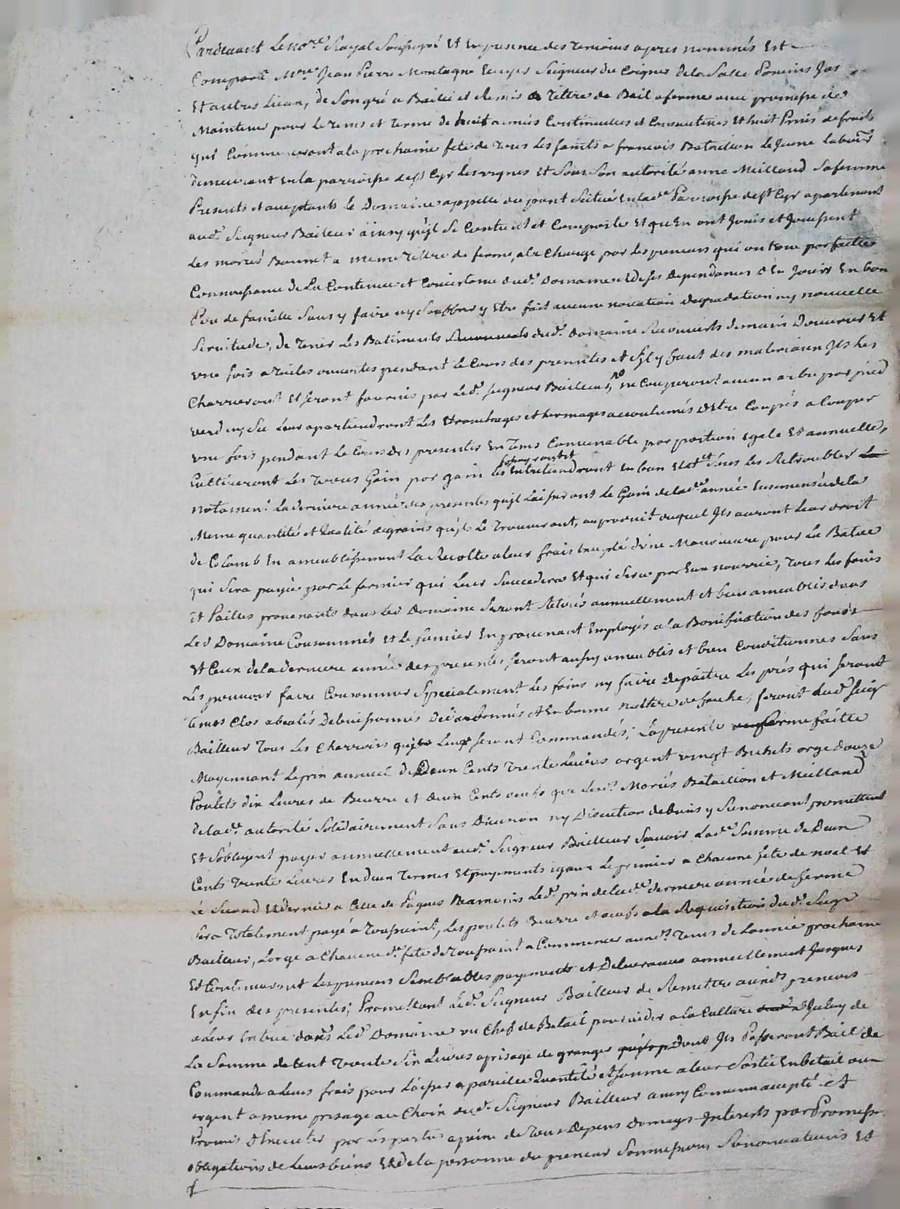 Pardevant Le no.re Royal Soussigné Et En presence des temoins apres nommés Est
Comparû M.re Jean Pierre Montagne Ecuyer Seigneur de Poigues de la Salle Poncins Jas
Et autres Lieux, de Son gré a Baillé et Remis a Tiltre de Bail a ferme avec promesse de
Maintenir pour Le tems et terme de huit années Continuelles et Consecutives Et huit Prises de fruits
qui Commenceront a la prochaine fete de Tous Les Saints a francois Bataillon Le Jeune Labour.r
demeurant En la parroisse de S.t Cyr Les vignes Et Sous Son autorité anne Meilland Sa femme
Presents et acceptants Le Domaine appellé du pont Scitué En lad.e Parroisse de S.t Cyr apartenant
aud.t Seigneur Bailleur ainsy qu'il Se Contient et Comporte Et qu'En ont Jouis et Jouissent
Les mariés Bonnet a meme tiltre de ferme, a la Charge par Les preneurs qui ont une parfaitte
Connoissance de La Contenue et Consistance dud.t Domaine et de Ses dependances d'En Jouir En bon
Pere de famille Sans y faire ny Souffrir y Etre fait aucune novation degradation ny nouvelle
Servitude, de Tenir Les Batiments dud.t Domaine Recouverts de main D'ouvrier Et
une fois a toiles ouvertes pendant Le Cours des presentes et S'il y faut des materiaux Ils Les
Charrieront Et Seront fournis par Led.t Seigneur Bailleur, ne Couperont aucun arbre par pied
verd ny Sec Leur apartiendront Les Etronchages et hermages accoutumés d'Etre Coupés a Couper
une fois pendant Le Cours des presentes En Tems Convenable par portion Egale Et annuelle,
Cultiveront Les Terres Gain par gain les Entretiendront En bon Etat Sans Les Retroubler
notament La derniere année des presentes qu'ils Laisseront Le Gain de lad.e année Ensemencé de la
Meme quantité et qualité de grains qu'ils Le Trouveront, au produit duquel Ils auront Leur droit
de Colomb En ameublissement La Recolte a leur frais d'une pour La Battue
qui Sera payée par Le fermier qui Leur Succedera Et qui Sera par Eux nourrie, Tous Les foins
Et Pailles provenants dans Led. Domaine Seront Retirés annuellement et bien ameublés dans
Led Domaine Consommés Et Le fumier En provenant Employés a la Bonification des fonds
Et Ceux de la derniere année des presentes Seront aussy ameublés et bien Conditionnés Sans
Les pouvoir faire Consommer Specialement Les foins ny faire depaitre Les prés qui Seront
tenus Clos Debuissonnés et En bonne nature de fauche; feront dud.t Seig.r
Bailleur Tous Les Charrois qui Leur Seront Commandés; La presente ferme faitte
Moyennant Le prix annuel de Deux Cents Trente Livres argent vingt Bichets orge douze
Poulets dix Livres de Beurre et deux Cents oeufs que Lesd.ts Mariés Bataillon et Meilland
de lad.e autorité Solidairement Sans Division ny Discution de Biens y Renoncant promettent
Et S'obligent payer annuellement aud.t Seigneur Bailleur Scavoir Lad.e Somme de Deux
Cents Trente Livres En deux Termes Et payements Egaux Le premier a Chacune fete de noel Et
Le Second Et dernier a Celle de Paques Neanmoins Led.t prix de lad.e derniere année de ferme
Sera Totalement payé a Toussaint, Les poulets Beurre et oeufs a la Requisition dud.t Seig.r
Bailleur, L'orge a Chacune d.e fete de Toussaint a Commencer aux d.ts Tems de L'année prochaine
Et Continueront Les preneurs Semblables payements et Delivrances annuellement Jusques
En fin des presentes; Promettant Led.t Seigneur Bailleur de Remettre auxd.ts preneurs
a Leur Entrée dans Led.t Domaine un Chef de Betail pour aider a la Culture a Valeur de
La Somme de Cent Trente Six Livres a prisage de granger dont Ils Passeront Bail de
Commande a Leurs frais pour Laisser a pareille Quantité et Somme a leur Sortie En betail ou
argent a meme prisage au Choix dud.t Seigneur Bailleur ainsy Convenu accepté et
Promis d'Executer par Les parties a peine de Tous depens Domages Interets par Promess.
obligations de Leurs biens Et de la personne du preneur Soumissions Renonciations Et